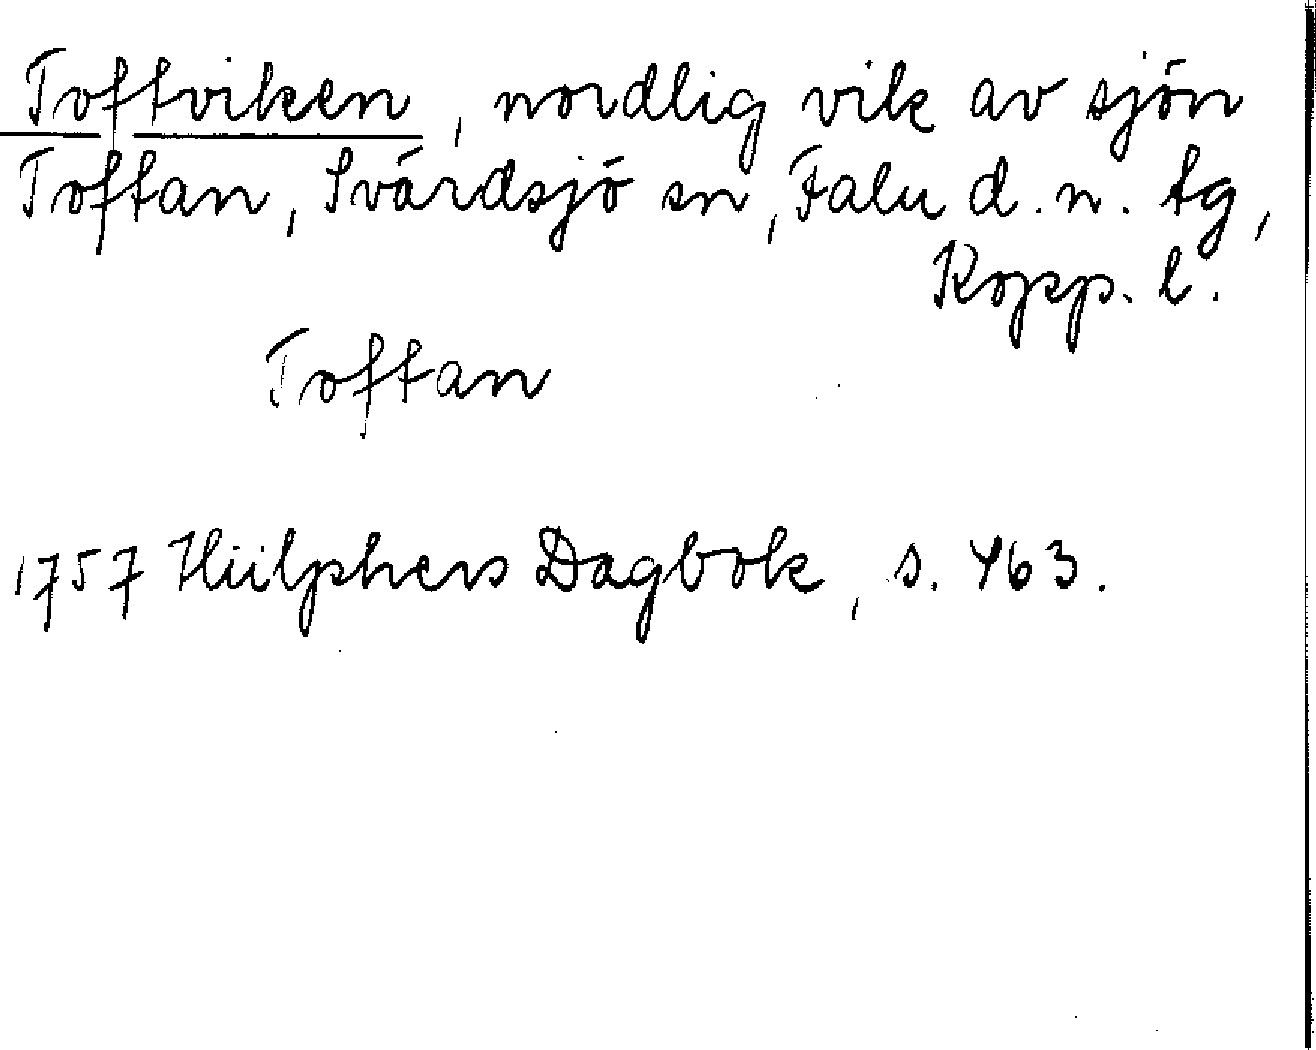 Toftviken, nordlig vik av sjön
Toftan, Svärdsjö sn, Falu d. n. tg,
Kopp. l.
Toftan
1757 Hülphers Dagbok, s. 463.